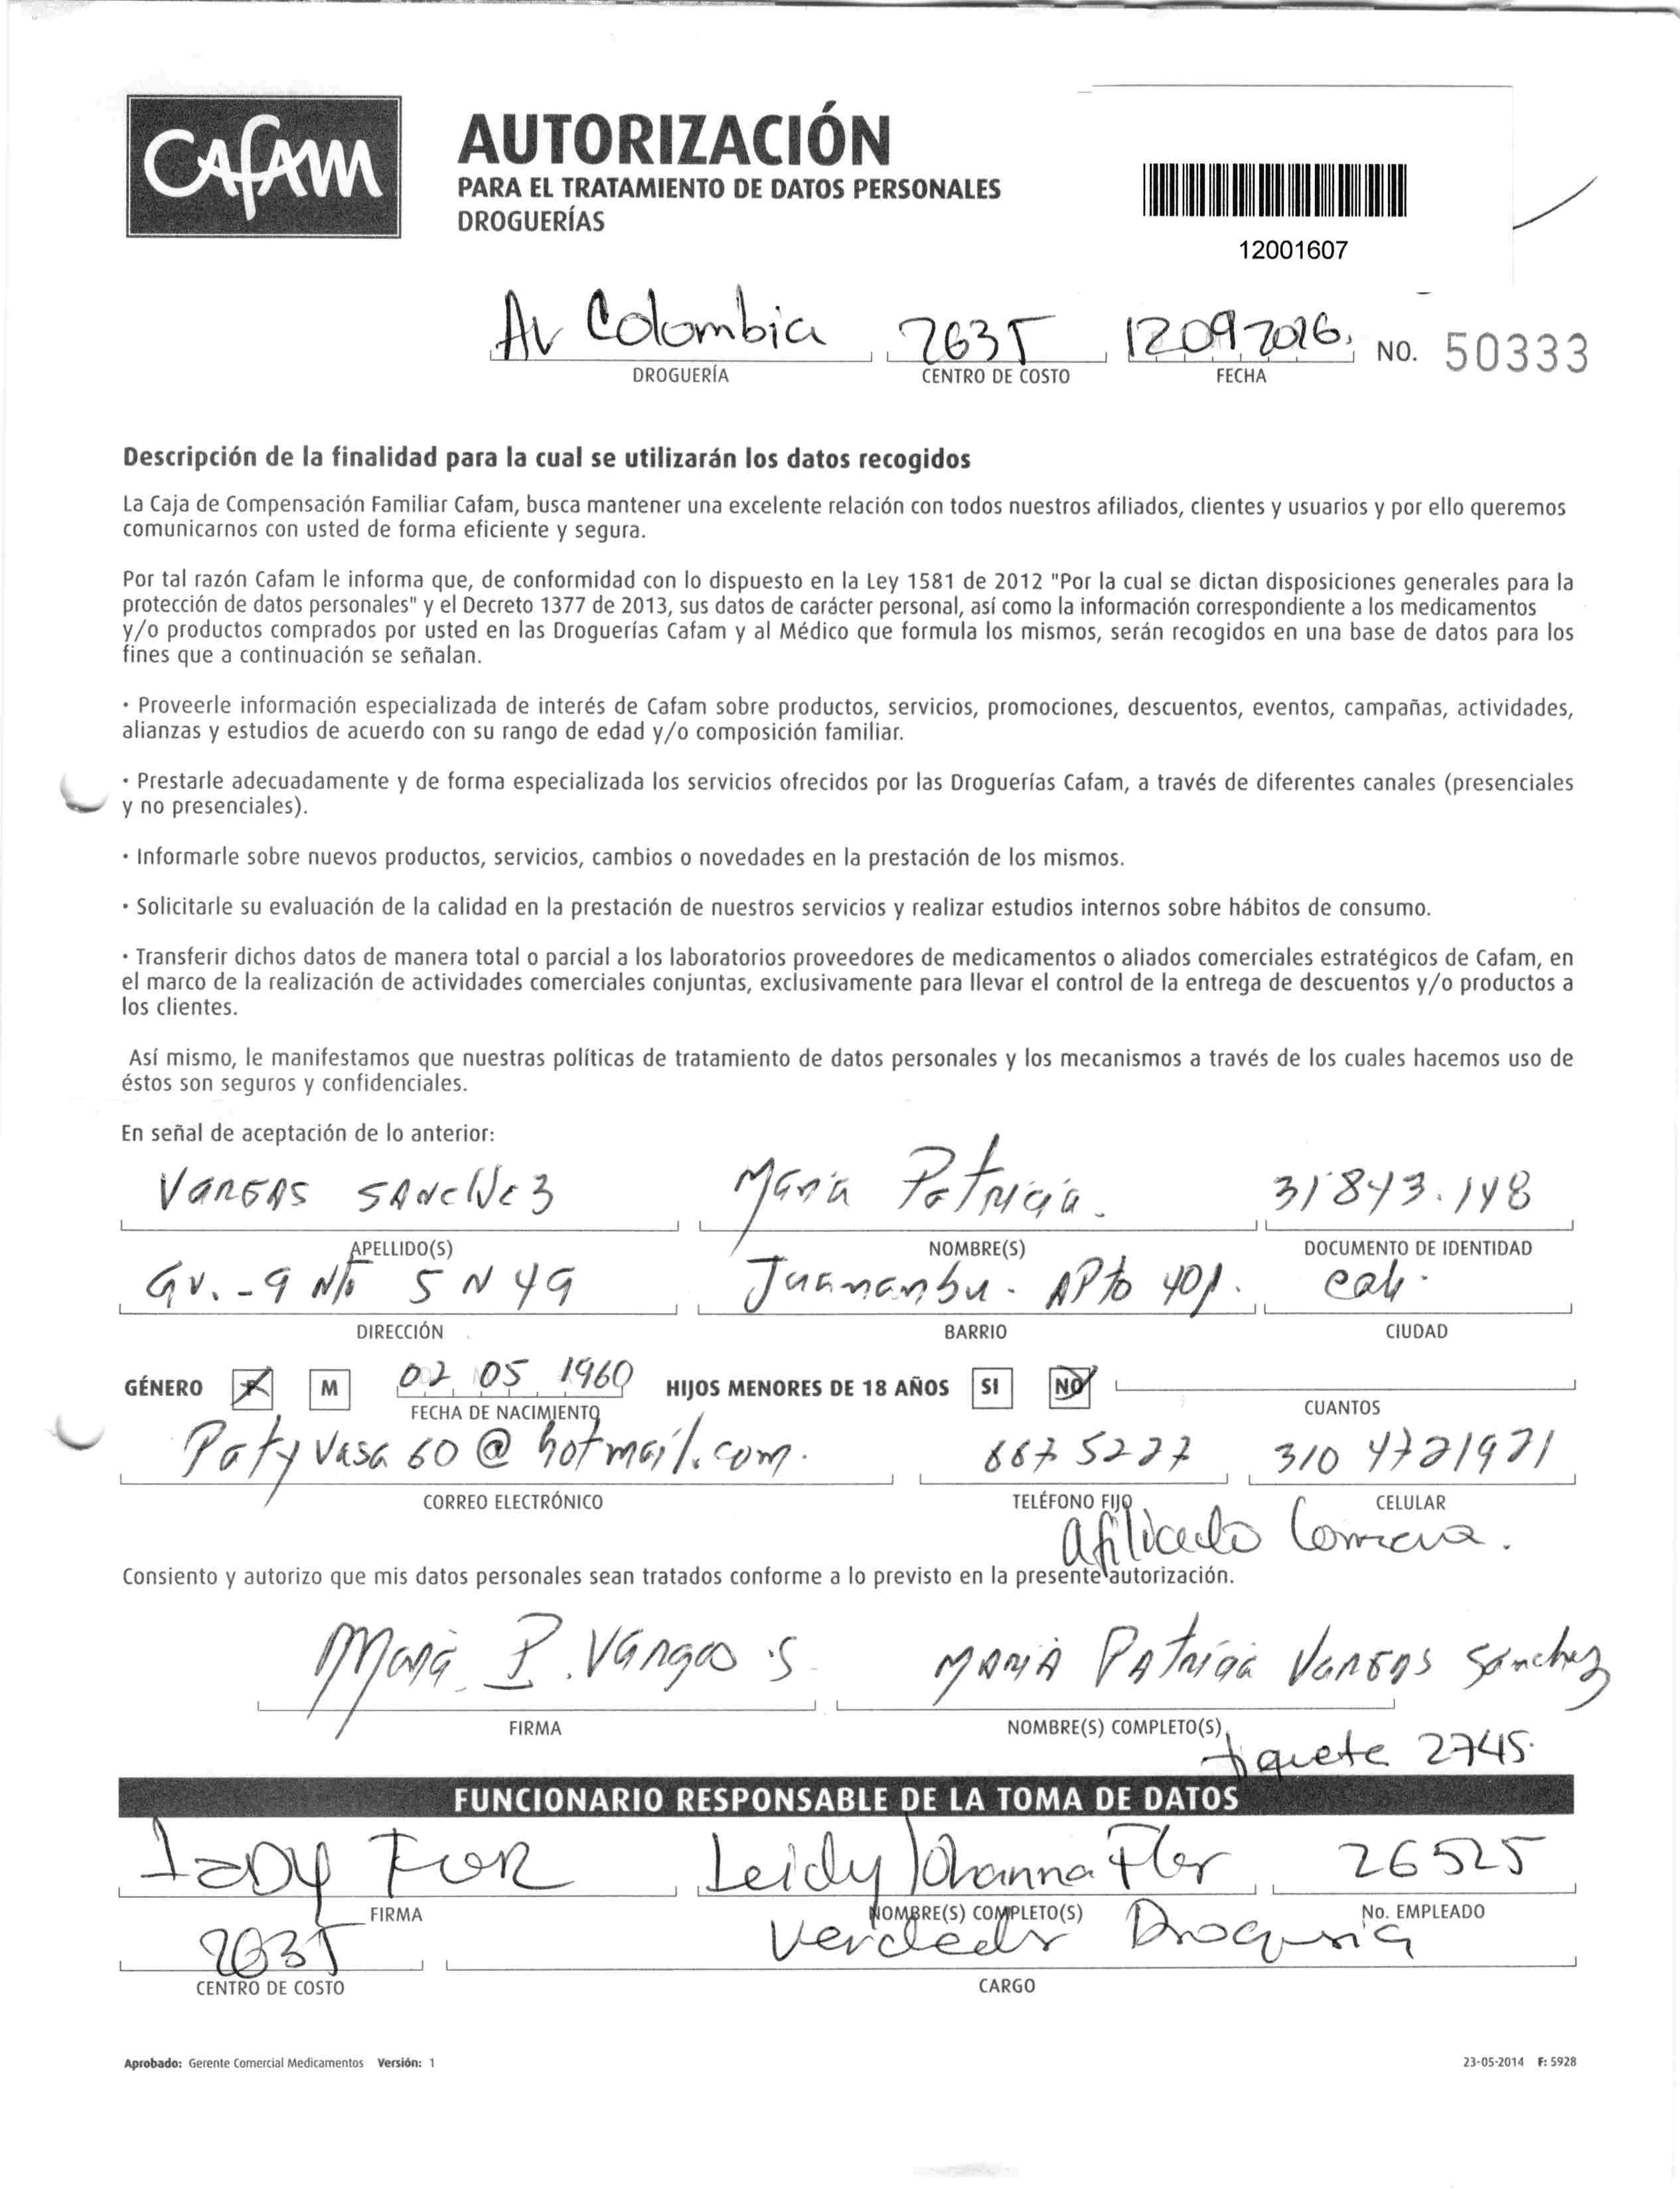 CAFAM
AUTORIZACIÓN
PARA EL TRATAMIENTO DE DATOS PERSONALES
DROGUERÍAS
12001607
Av Colombia 2635 12092016. NO. 50333
DROGUERÍA CENTRO DE COSTO FECHA
Descripción de la finalidad para la cual se utilizarán los datos recogidos
La Caja de Compensación Familiar Cafam, busca mantener una excelente relación con todos nuestros afiliados, clientes y usuarios y por ello queremos
comunicarnos con usted de forma eficiente y segura.
Por tal razón Cafam le informa que, de conformidad con lo dispuesto en la Ley 1581 de 2012 "Por la cual se dictan disposiciones generales para la
protección de datos personales" y el Decreto 1377 de 2013, sus datos de carácter personal, así como la información correspondiente a los medicamentos
y/o productos comprados por usted en las Droguerías Cafam y al Médico que formula los mismos, serán recogidos en una base de datos para los
fines que a continuación se señalan.
· Proveerle información especializada de interés de Cafam sobre productos, servicios, promociones, descuentos, eventos, campañas, actividades,
alianzas y estudios de acuerdo con su rango de edad y/o composición familiar.
· Prestarle adecuadamente y de forma especializada los servicios ofrecidos por las Droguerías Cafam, a través de diferentes canales (presenciales
y no presenciales).
· Informarle sobre nuevos productos, servicios, cambios o novedades en la prestación de los mismos.
· Solicitarle su evaluación de la calidad en la prestación de nuestros servicios y realizar estudios internos sobre hábitos de consumo.
· Transferir dichos datos de manera total o parcial a los laboratorios proveedores de medicamentos o aliados comerciales estratégicos de Cafam, en
el marco de la realización de actividades comerciales conjuntas, exclusivamente para llevar el control de la entrega de descuentos y/o productos a
los clientes.
Así mismo, le manifestamos que nuestras políticas de tratamiento de datos personales y los mecanismos a través de los cuales hacemos uso de
éstos son seguros y confidenciales.
En señal de aceptación de lo anterior:
Vargas Sánchez María Patricia. 31'843.148
APELLIDO(S) NOMBRE(S) DOCUMENTO DE IDENTIDAD
5 N 49 Juanambu. APto 401. Cali.
DIRECCIÓN BARRIO CIUDAD
GÉNERO F M 02 05 1960 HIJOS MENORES DE 18 AÑOS SI NO
FECHA DE NACIMIENTO CUANTOS
Patyvasa60@hotmail.com. 667 5277 310 4721971
CORREO ELECTRÓNICO TELÉFONO FIJO CELULAR
afiliado
Consiento y autorizo que mis datos personales sean tratados conforme a lo previsto en la presente autorización.
María P. Vargas S. María Patricia Vargas Sánchez
FIRMA NOMBRE(S) COMPLETO(S)
tiquete 2745.
FUNCIONARIO RESPONSABLE DE LA TOMA DE DATOS
Leidy Johanna Flor 26525
FIRMA NOMBRE(S) COMPLETO(S) No. EMPLEADO
2635 Vendedor Drogueria
CENTRO DE COSTO CARGO
Aprobado: Gerente Comercial Medicamentos Versión: 1 23-05-2014 F: 5928